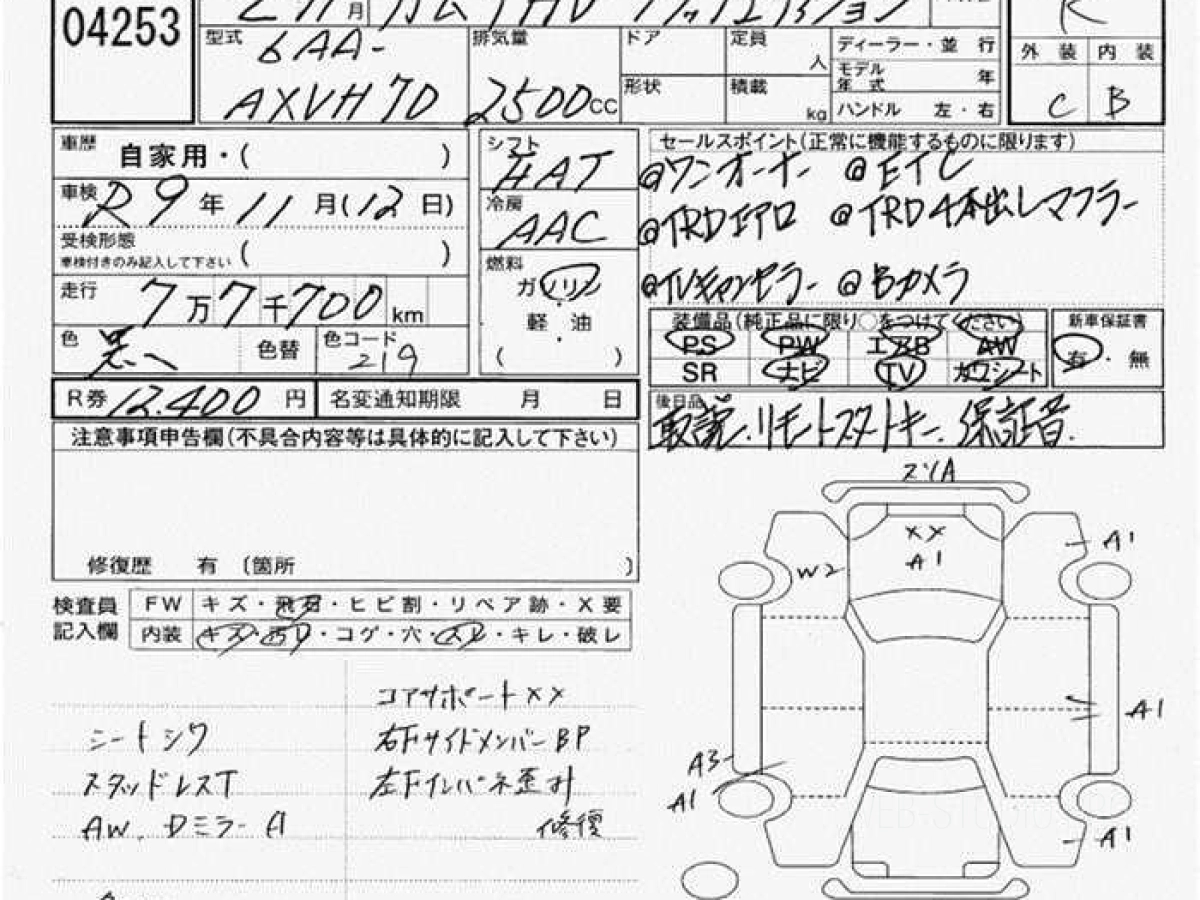 04253
月 カム
型式 6AA- 排気量 ドア 定員 人 ディーラー・並 行
AXVH70 2500 CC 形状 積載 kg モデル年式 年
ハンドル 左・右
R
外 装 内 装
C B
車歴 自家用・( )
車検 R 9 年 11 月(12 日)
受検形態 ( )
車検付きのみ記入して下さい
走行 7万7千700 km
色 黒 色替 色コード 219
シフト AT
冷房 AAC
燃料 ガソリン
軽・油
( )
セールスポイント(正常に機能するものに限ります)
@ワンオーナー @ETC
@TRDエアロ @TRD4本出しマフラー
@TVキャンセラー @Bカメラ
装備品(純正品に限り○をつけてください) 新車保証書
PS PW エアB AW 有・無
SR ナビ TV カワシート
R券 12,400 円 名変通知期限 月 日
後日品 取説.リモートスタートキー.保証書.
注意事項申告欄(不具合内容等は具体的に記入して下さい)
修復歴 有 〔箇所 〕
検査員記入欄
FW キズ・飛石・ヒビ割・リペア跡・X要
内装 キズ・汚レ・コゲ・穴・スレ・キレ・破レ
コアサポートXX
シートシワ 右下サイドメンバーBP
スタッドレスT 左下インパネ歪み
AW.Dミラー A 修復
スソA
XX
A1
A1
W2
A1
A3
A1
A1